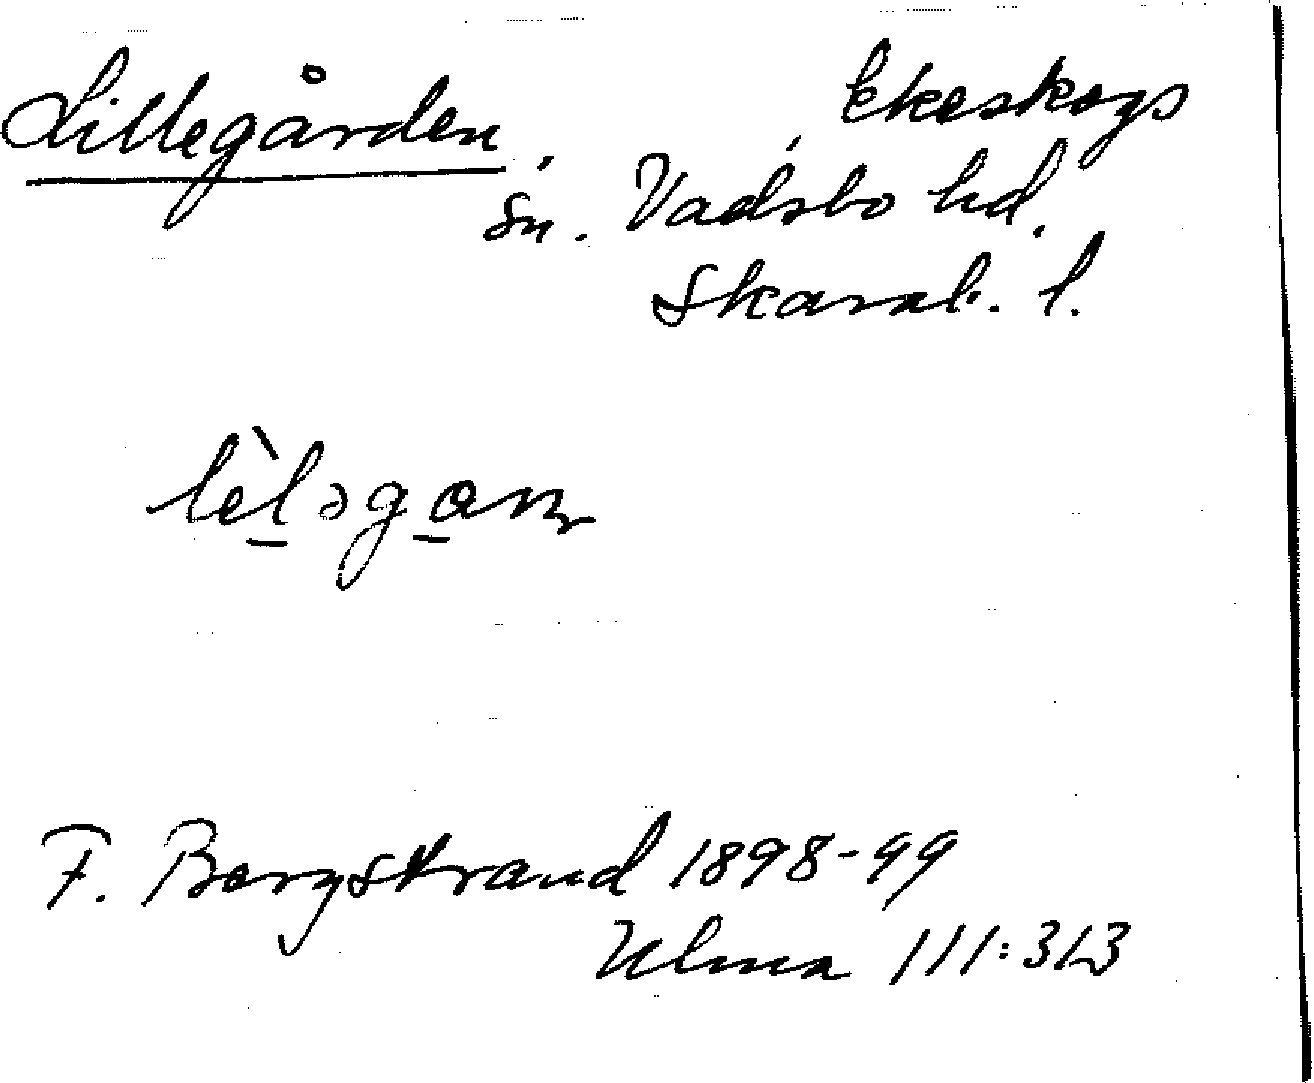 Lillegården, Ekeskogs
sn. Vadsbo hd.
Skarab. l.
lèləgan
F. Bergstrand 1898-99
Ulma 111:313